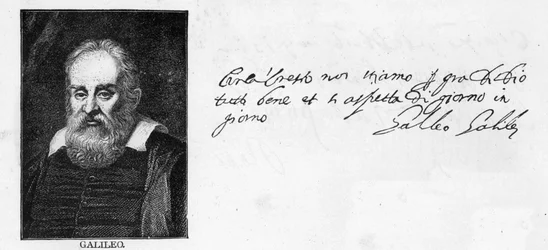 noi stiamo gra di dio
tutti bene et si aspetta di giorno in
giorno
Galileo Galilei
GALILEO.